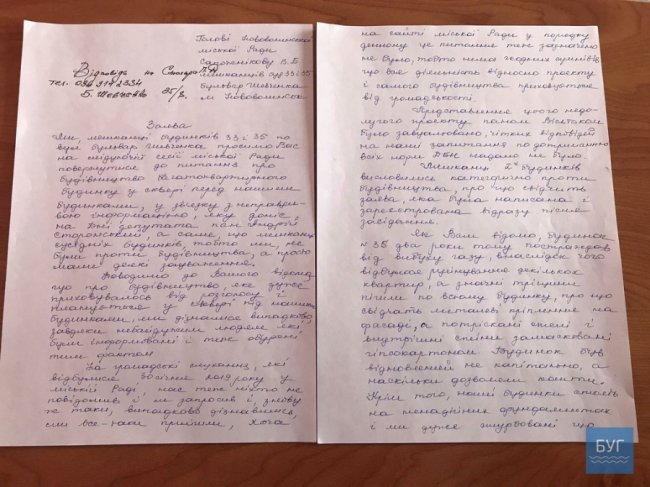 Голові Нововолинської
міської Ради
Сапожнікову В.Б
мешканців буд 33 і 35
бульвар Шевченка
м Нововолинськ
Відповідь на
тел.
Б. Шевченко 35/
Заява
Ми, мешканці будинків 33 і 35 по
вул бульвар Шевченка просимо Вас
на найближчій сесії міської Ради
повернутися до питання про
будівництво багатоквартирного
будинку у сквері перед нашими
будинками, у звязку з неправди-
вою інформацією, яку доніс
на Вас депутат пан Андрій
Сторонський, а саме, що мешканці
сусідніх будинків, тобто ми, не
були проти будівництва, а просто
мали деякі зауваження.
Доводимо до Вашого відома,
що про будівництво, яке дуже
приховувалось від розголосу і
планується у сквері під нашими
будинками, ми дізналися випадково,
завдяки небайдужим людям які
були інформовані і теж обурені
тим фактом
На громадські слухання, які
відбулися 30 січня 2019 року у
міській Раді, нас теж ніхто не
повідомив і не запросив і, знову
ж таки, випадково дізнавшись,
ми все-таки прийшли, хоча,
на сайті міської Ради у порядку
денному це питання теж зазначено
не було, тобто нема жодних сумнівів,
що вся діяльність відносно проекту
і самого будівництва приховується
від громадськості.
Представлення цього недо-
лугого проекту паном
було завуальовано, чітких відповідей
на наші запитання по дотриманню
всіх норм ДБН надано не було.
Мешканці 2х будинків
висловились категорично проти
будівництва, про що свідчить
заява, яка була написана і
зареєстрована відразу після
засідання.
Як Вам відомо, будинок
№ 35 два роки тому постраждав
від вибуху газу, внаслідок чого
відбулося руйнування декількох
квартир, а значні тріщини
пішли по всьому будинку, про що
свідчать металеві кріплення на
фасаді, а потріскані стелі і
внутрішні стіни замасковані
гіпсокартоном Будинок був
відновлений не капітально, а
наскільки дозволяли кошти.
Крім того, наші будинки стоять
на ненадійних фундаментах
і ми дуже стурбовані що
БУГ